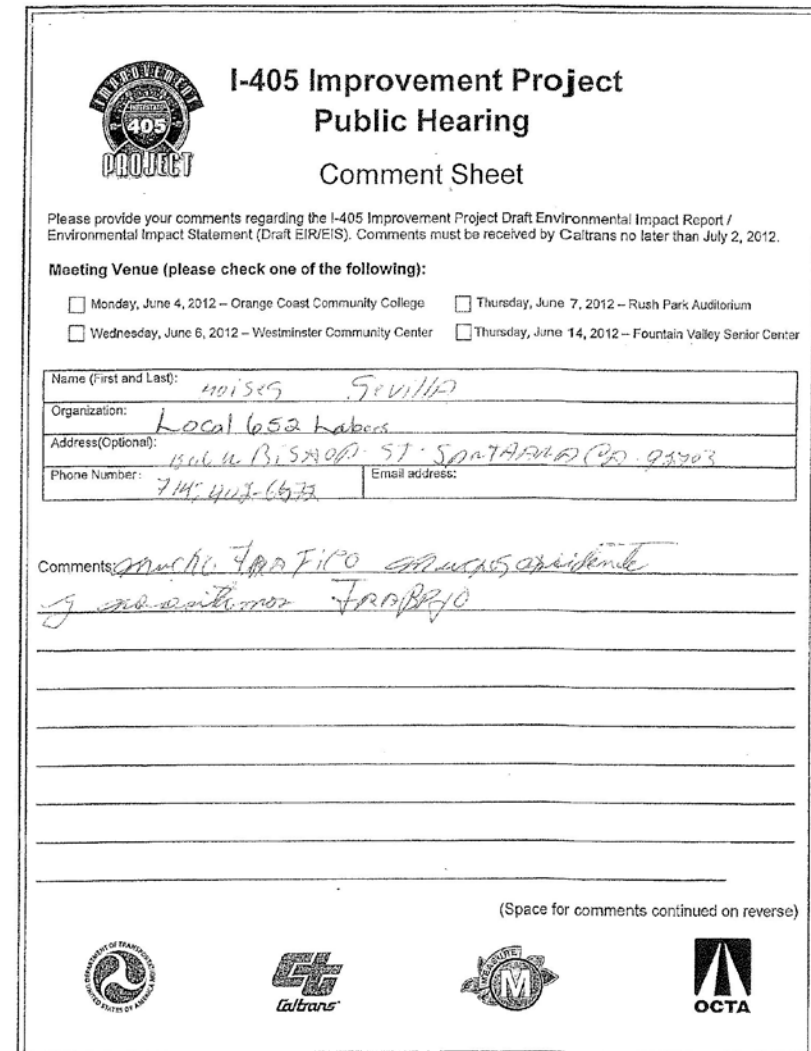 IMPROVEMENT
INTERSTATE
405
PROJECT
I-405 Improvement Project
Public Hearing
Comment Sheet
Please provide your comments regarding the I-405 Improvement Project Draft Environmental Impact Report /
Environmental Impact Statement (Draft EIR/EIS). Comments must be received by Caltrans no later than July 2, 2012.
Meeting Venue (please check one of the following):
Monday, June 4, 2012 – Orange Coast Community College
Thursday, June 7, 2012 – Rush Park Auditorium
Wednesday, June 6, 2012 – Westminster Community Center
Thursday, June 14, 2012 – Fountain Valley Senior Center
Name (First and Last): Moises Sevilla
Organization: Local 652 Labors
Address(Optional): BISHOP ST. SANTA ANA CA.
Phone Number: 714
Email address:
Comments: mucho TRAFICO muchos
y TRABAJO
(Space for comments continued on reverse)
DEPARTMENT OF TRANSPORTATION
UNITED STATES OF AMERICA
Caltrans
MEASURE
M
OCTA